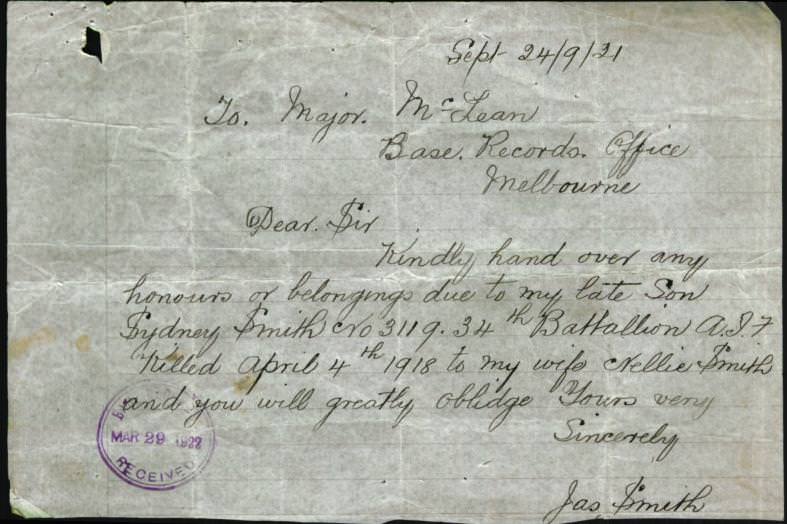 Sept 24/9/21
To. Major. McLean
Base. Records. Office
Melbourne
Dear. Sir
Kindly hand over any
honours or belongings due to my late Son
Sydney Smith No 3119. 34th Battallion A.I.F
Killed April 4th 1918 to my wife Nellie Smith
and you will greatly oblidge Yours very
Sincerely
Jas Smith
MAR 29 1922
RECEIVED